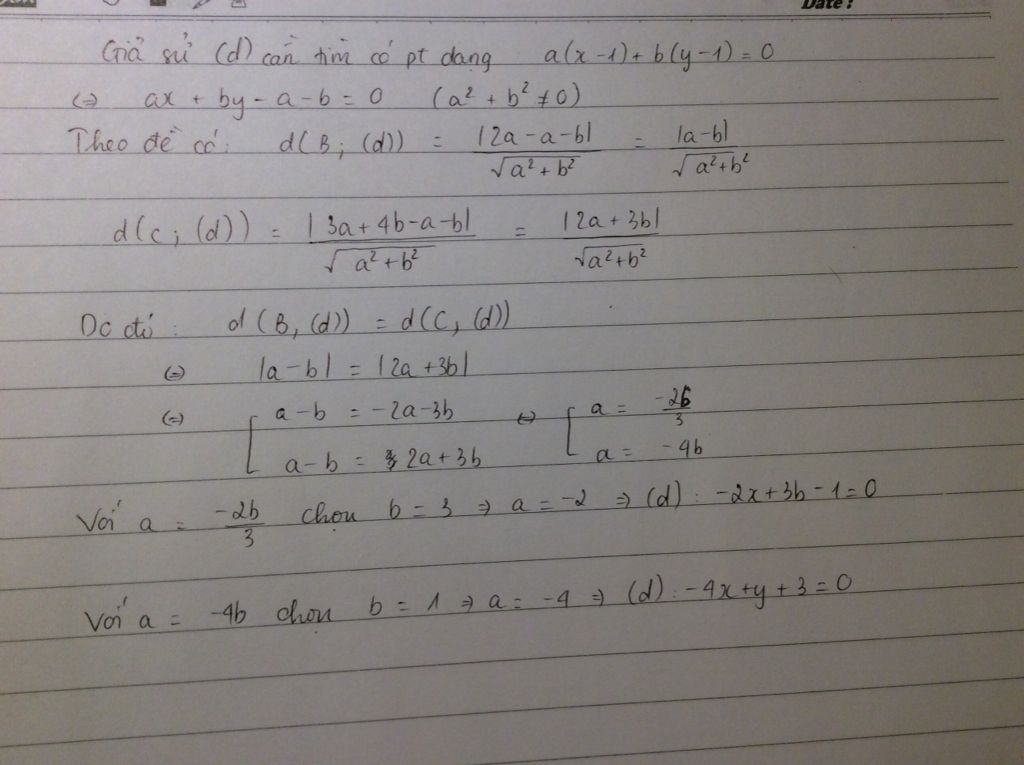 Date:
Giả sử (d) cần tìm có pt dạng a(x-1)+b(y-1)=0
(=) ax + by - a - b = 0 (a² + b² ≠ 0)
Theo đề có: d(B; (d)) = |2a-a-b| / √a²+b² = |a-b| / √a²+b²
d(C; (d)) = |3a+4b-a-b| / √a²+b² = |2a+3b| / √a²+b²
Do đó: d(B,(d)) = d(C,(d))
(=) |a-b| = |2a+3b|
(=) [ a-b = -2a-3b ⇔ [ a = -2b/3
a-b = 2a+3b a = -4b
Với a = -2b/3 chọn b = 3 ⇒ a = -2 ⇒ (d): -2x+3b-1=0
Với a = -4b chọn b = 1 ⇒ a = -4 ⇒ (d): -4x+y+3=0